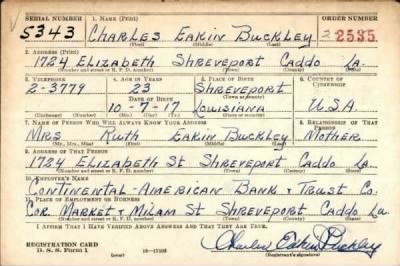 SERIAL NUMBER 1. NAME (Print) ORDER NUMBER
5343 CHARLES EAKIN BUCKLEY 2535
(First) (Middle) (Last)
2. ADDRESS (Print)
1724 ELIZABETH SHREVEPORT CADDO LA.
(Number and street or R. F. D. number) (Town) (County) (State)
3. TELEPHONE 4. AGE IN YEARS 5. PLACE OF BIRTH 6. COUNTRY OF CITIZENSHIP
2-3779 23 SHREVEPORT
DATE OF BIRTH (Town or county)
10-7-17 LOUISIANA U.S.A.
(Mo.) (Day) (Yr.) (State or country)
7. NAME OF PERSON WHO WILL ALWAYS KNOW YOUR ADDRESS 8. RELATIONSHIP OF THAT PERSON
MRS RUTH EAKIN BUCKLEY MOTHER
(Mr., Mrs., Miss) (First) (Middle) (Last)
9. ADDRESS OF THAT PERSON
1724 ELIZABETH ST SHREVEPORT CADDO LA.
(Number and street or R. F. D. number) (Town) (County) (State)
10. EMPLOYER'S NAME
CONTINENTAL-AMERICAN BANK & TRUST CO.
11. PLACE OF EMPLOYMENT OR BUSINESS
COR. MARKET & MILAM ST SHREVEPORT CADDO LA.
(Number and street or R. F. D. number) (Town) (County) (State)
I AFFIRM THAT I HAVE VERIFIED ABOVE ANSWERS AND THAT THEY ARE TRUE.
REGISTRATION CARD
D. S. S. Form 1 Charles Eakin Buckley
(over) (Registrant's signature)